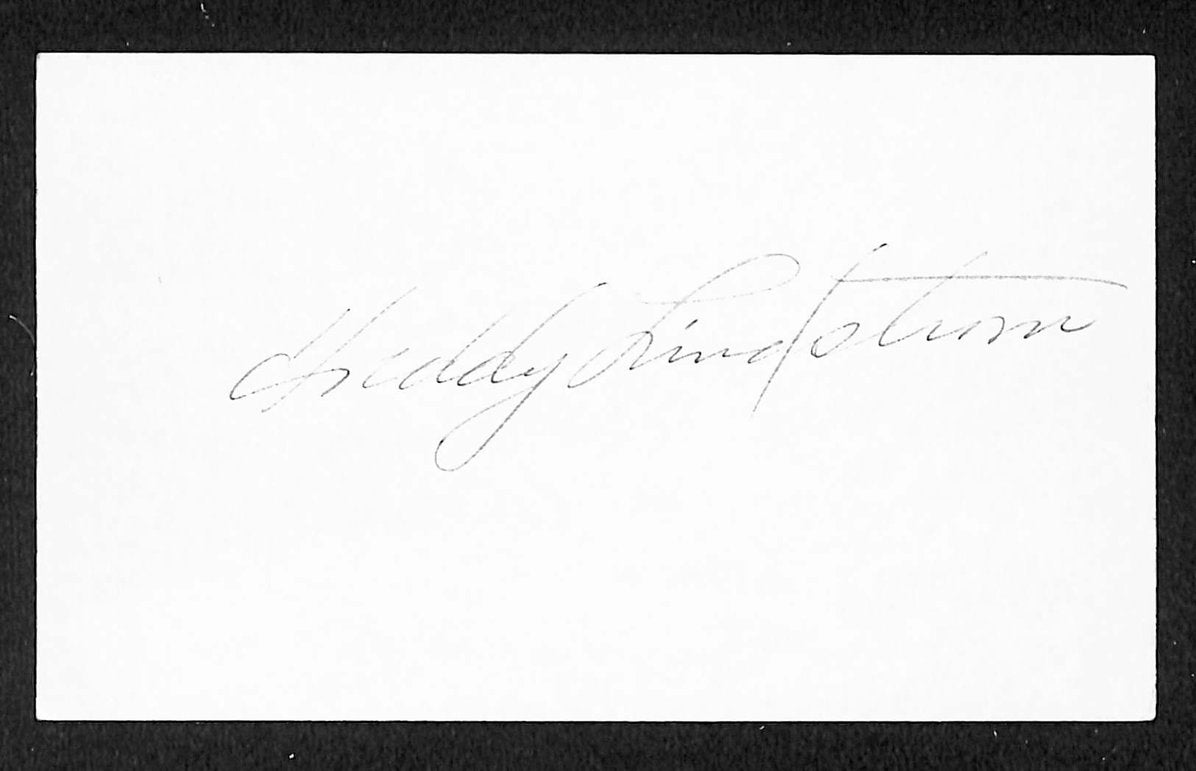 Freddy Lindstrom